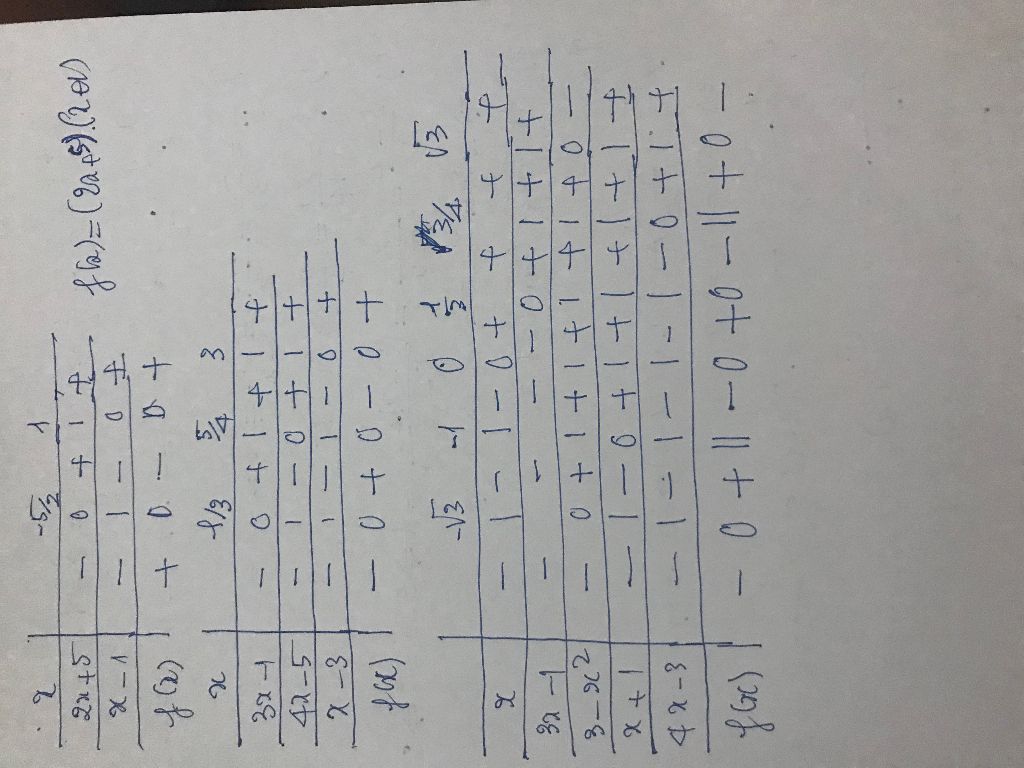 x -5/2 1
2x+5 − 0 + | +
x−1 − | − 0 +
f(x) + 0 − 0 +
f(x)=(2x+5).(
x 1/3 5/4 3
3x−1 − 0 + | + | +
4x−5 − | − 0 + | +
x−3 − | − | − 0 +
f(x) − 0 + 0 − 0 +
-√3 -1 0 1/3 3/4 √3
x − | − | − 0 + + + +
3x−1 − − − − 0 + | + | +
3−x² − 0 + | + | + | + | + 0 −
x+1 − | − 0 + | + | + | + | +
4x−3 − | − | − | − | − 0 + | +
f(x) − 0 + || − 0 + 0 − || + 0 −